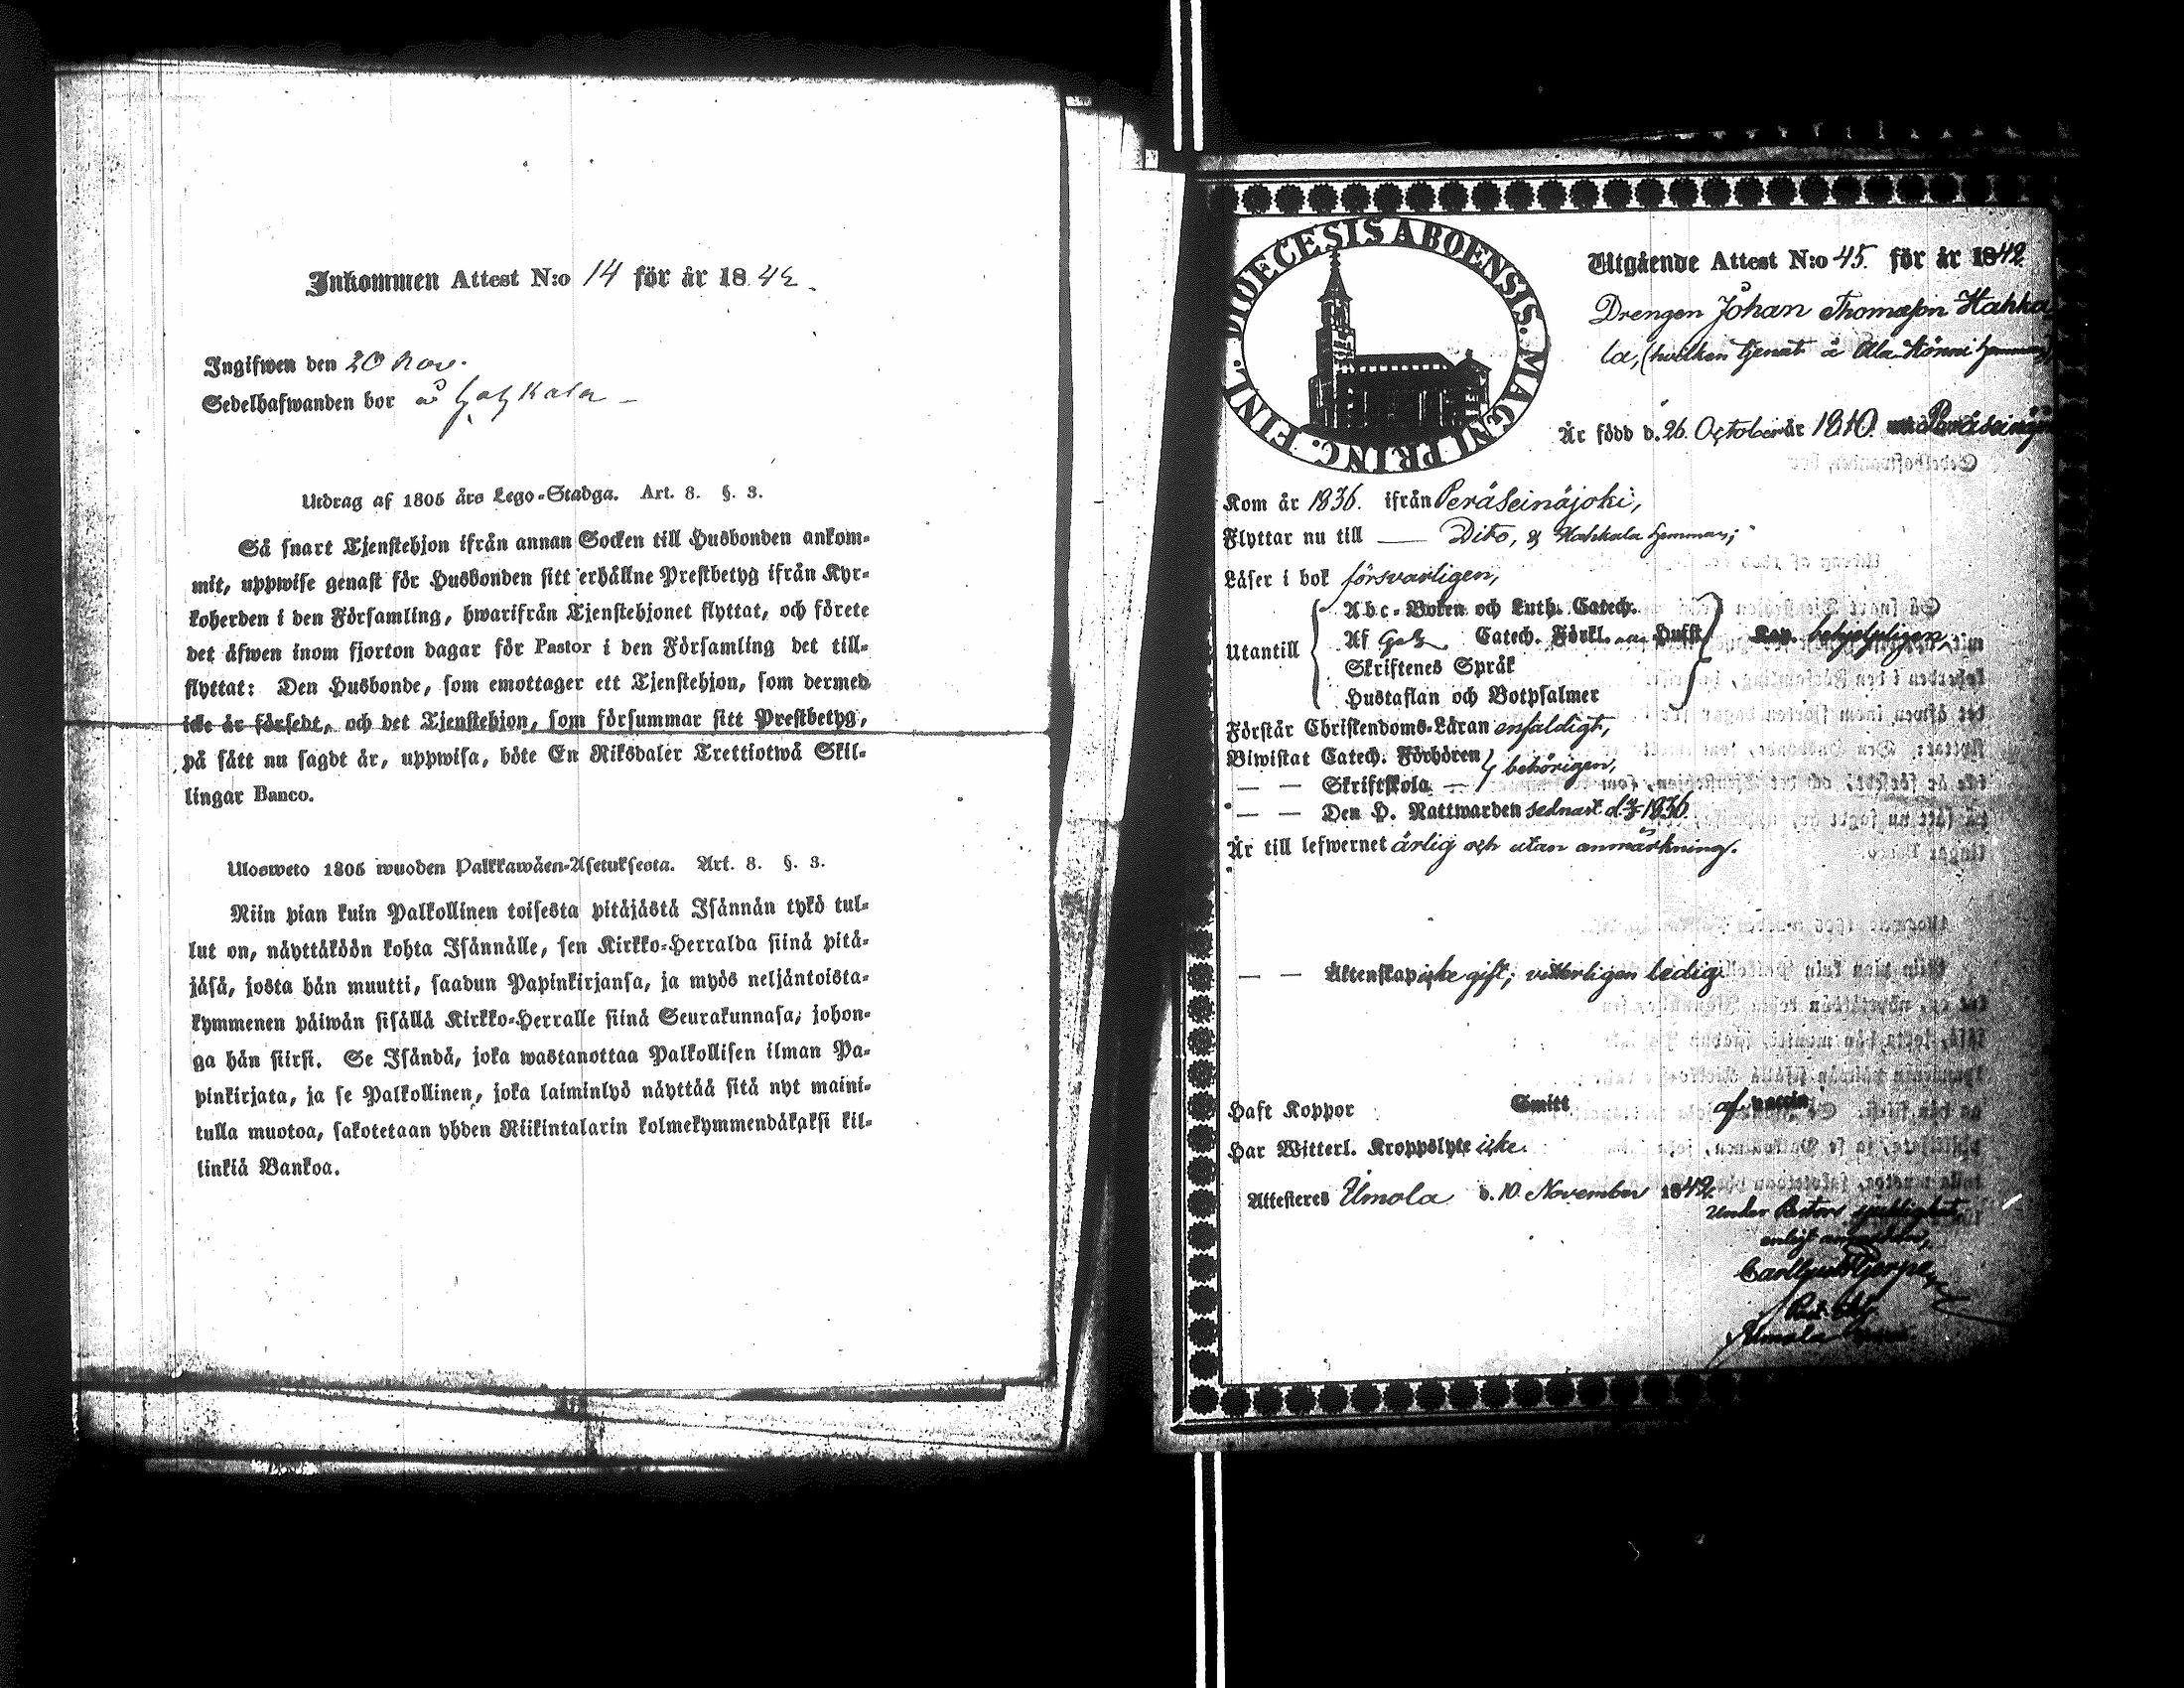 Inkommen Attest N:o 14 för år 1842.
Ingifwen den 20 Nov.
Sedelhafwanden bor å Hahkala
Utdrag af 1805 års Lego-Stadga. Art. 8. §. 3.
Så snart Tjenstehjon ifrån annan Socken till Husbonden ankom-
mit, uppwise genast för Husbonden sitt erhållne Prestbetyg ifrån Kyr-
koherden i den Församling, hwarifrån Tjenstehjonet flyttat, och förete
det äfwen inom fjorton dagar för Pastor i den Församling det till-
flyttat: Den Husbonde, som emottager ett Tjenstehjon, som dermed
icke är försedt, och det Tjenstehjon, som försummar sitt Prestbetyg,
på sätt nu sagdt är, uppwisa, böte En Riksdaler Trettiotwå Skil-
lingar Banco.
Ulosweto 1805 wuoden Palkkawäen-Asetuksesta. Art. 8. §. 3.
Niin pian kuin Palkollinen toisesta pitäjästä Isännän tykö tul-
lut on, näyttäköön kohta Isännälle, sen Kirkko-Herralda siinä pitä-
jäsä, josta hän muutti, saadun Papinkirjansa, ja myös neljäntoista-
kymmenen päiwän sisällä Kirkko-Herralle siinä Seurakunnasa, johon-
ga hän siirsi. Se Isändä, joka wastanottaa Palkollisen ilman Pa-
pinkirjata, ja se Palkollinen, joka laiminlyö näyttää sitä nyt maini-
tulla muotoa, sakotetaan yhden Riikintalarin kolmekymmendäkaksi kil-
linkiä Bankoa.
DIOECESIS ABOENSIS. MAGNI PRINC. FINL.
Utgående Attest N:o 45. för år 1842
Drengen Johan Thomasson Hahka
la, (hvilken tjenat å Ala Könni hemman),
Är född d. 26. October år 1810. Peräseinäjoki
Kom år 1836. ifrån Peräseinäjoki,
Flyttar nu till — Dito, & Hahkala hemman;
Läser i bok försvarligen,
Abc-Boken och Luth. Catech.
Utantill Af Catech. Förkl. Hufst Kap. behjelpligen
Skriftenes Språk
Hustaflan och Botpsalmer
Förstår Christendoms-Läran enfaldigt,
Biwistat Catech. Förhören behörigen,
— — Skriftskola —
— — Den H. Nattwarden sednast d. 1836.
Är till lefwernet ärlig och utan anmärkning.
— — Äktenskap icke gift; vitterligen ledig
Haft Koppor Smitt af vaccin
Har Witterl. Kroppslyte icke.
Attesteres Ilmola d. 10 November 1842.
Under Pastors sjuklighet
enligt anmodan,
Ilmola